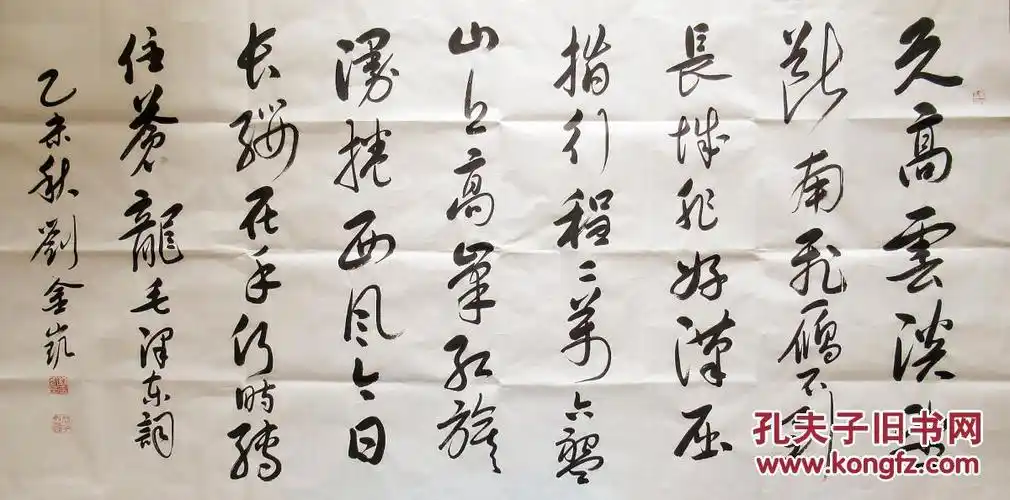 天高雲淡望
斷南飛雁不到
長城非好漢屈
指行程二萬六盤
山上高峯紅旗
漫捲西風今日
长纓在手何時縛
住蒼龍毛澤東詞
乙未秋劉金凱
孔夫子旧书网
www.kongfz.com